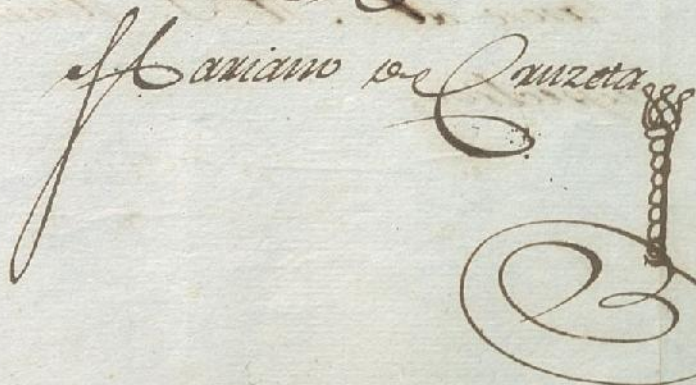 Mariano de Cruzeta